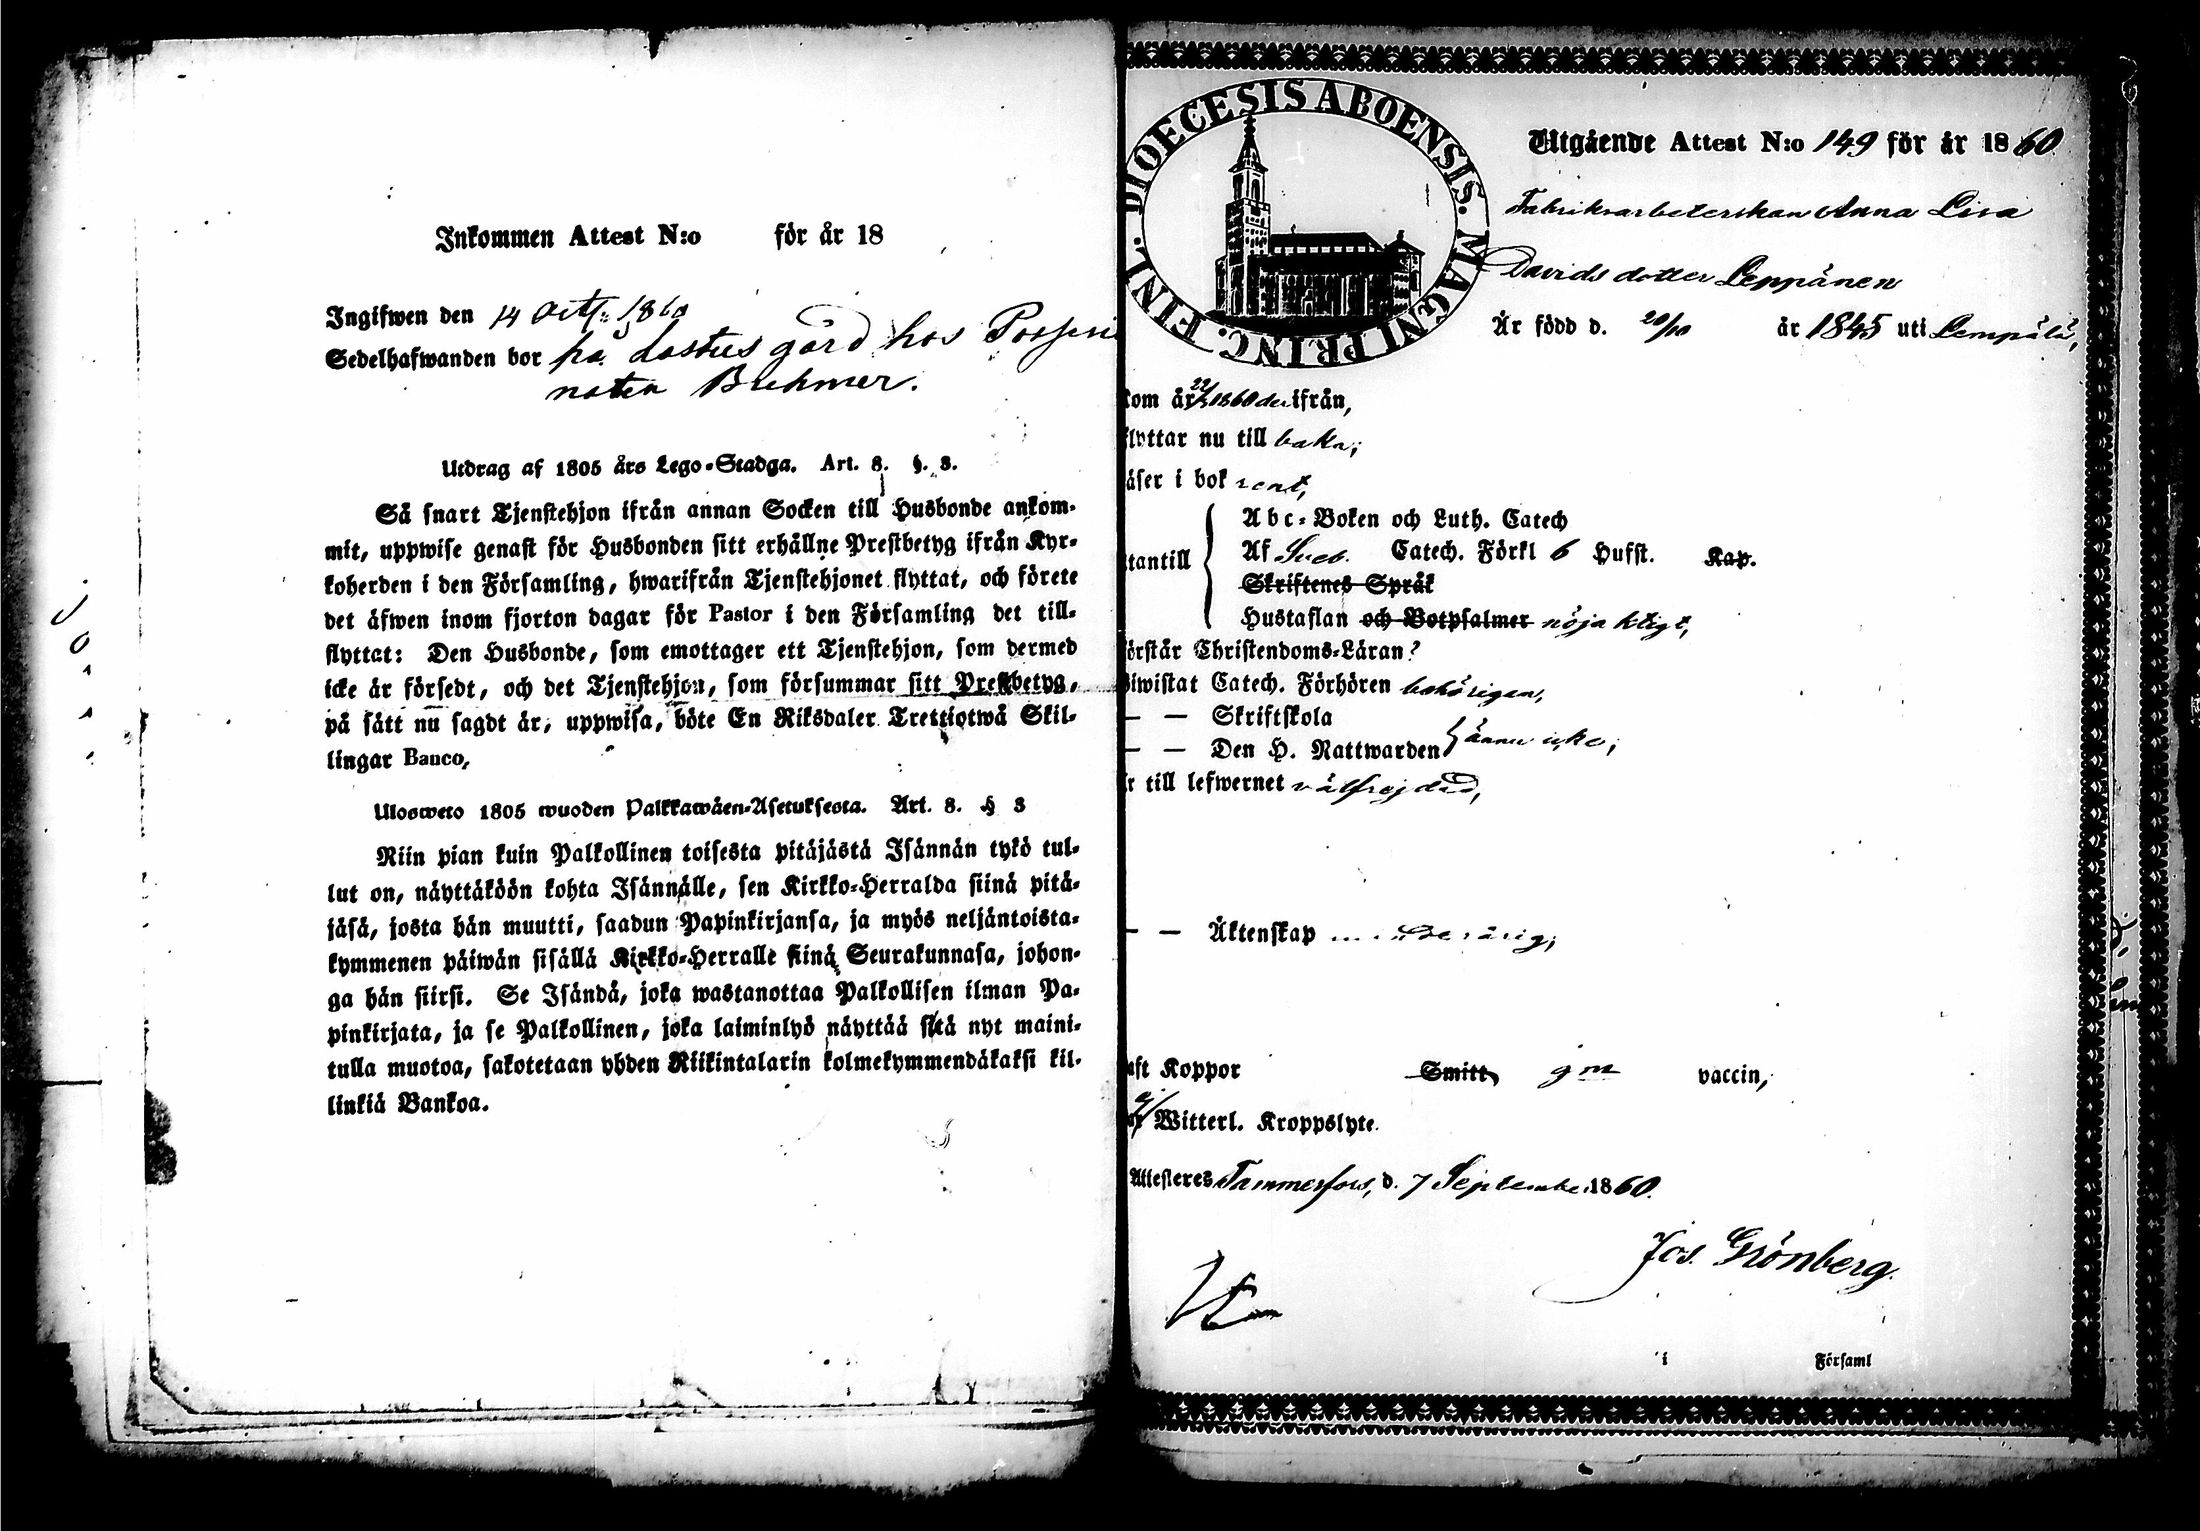 Inkommen Attest N:o för år 18
Ingifwen den 14 1860
Sedelhafwanden bor på gård hos
Utdrag af 1805 års Lego-Stadga. Art. 8. §. 3.
Så snart Tjenstehjon ifrån annan Socken till Husbonde ankom-
mit, uppwise genast för Husbonden sitt erhållne Prestbetyg ifrån Kyr-
koherden i den Församling, hwarifrån Tjenstehjonet flyttat, och förete
det äfwen inom fjorton dagar för Pastor i den Församling det till-
flyttat: Den Husbonde, som emottager ett Tjenstehjon, som dermed
icke är försedt, och det Tjenstehjon, som försummar sitt Prestbetyg,
på sätt nu sagdt är, uppwisa, böte En Riksdaler Trettiotwå Skil-
lingar Banco,
Ulosweto 1805 wuoden Palkkawäen-Asetuksesta. Art. 8. § 3
Niin pian kuin Palkollinen toisesta pitäjästä Isännän tykö tul-
lut on, näyttäköön kohta Isännälle, sen Kirkko-Herralda siinä pitä-
jäsä, josta hän muutti, saadun Papinkirjansa, ja myös neljäntoista-
kymmenen päiwän sisällä Kirkko-Herralle siinä Seurakunnasa, johon-
ga hän siirsi. Se Isändä, joka wastanottaa Palkollisen ilman Pa-
pinkirjata, ja se Palkollinen, joka laiminlyö näyttää sitä nyt maini-
tulla muotoa, sakotetaan yhden Riikintalarin kolmekymmendäkaksi kil-
linkiä Bankoa.
DIOECESIS ABOENSIS. MAGNI PRINC. FINL.
Utgående Attest N:o 149 för år 1860
Fabriksarbeterskan Anna Lisa
Davidsdotter Leppänen
Är född d. 20/10 år 1845 uti Lempälä,
kom år 1860 derifrån,
flyttar nu till baka,
läser i bok rent,
utantill
Abc-Boken och Luth. Catech
Af Sveb. Catech. Förkl 6 Hufst. Kap.
Skriftenes Språk
Hustaflan och Botpsalmer nöjaktigt,
Förstår Christendoms-Läran?
Biwistat Catech. Förhören behörigen,
— — Skriftskola
— — Den H. Nattwarden ännu icke,
Är till lefwernet välfrejdad,
— — Äktenskap minderårig,
haft Koppor Smitt, gm vaccin,
Witterl. Kroppslyte.
Attesteres Tammerfors, d. 7 September 1860.
Jos. Grönberg.
i Församl